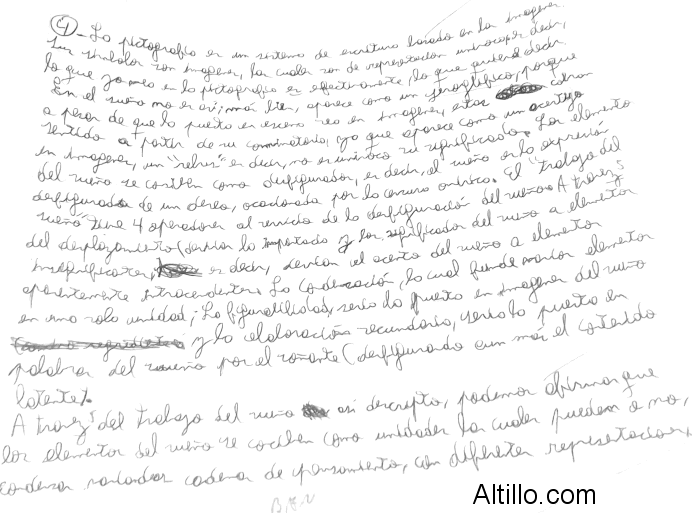 4_ La pictografía es un sistema de escritura basado en las imagenes
Sus símbolos son imagenes, las cuales son de representación unívoca, es decir,
lo que yo veo en la pictografía es efectivamente, lo que quiere decir.
En el sueño no es así; más bien, aparece como un jeroglífico, porque
a pesar de que la puesta en escena sea en imagenes, estas cobran
sentido a partir de su combinatoria, ya que aparece como un acertijo
en imagenes, un "rebus" es decir, no es unívoco su significado. Los elementos
del sueño se conciben como desfigurados, es decir, el sueño es la expresión
desfigurada de un deseo, ocasionada por la censura onírica. El "trabajo del
sueño" tiene 4 operadores al servicio de la desfiguración del sueño. A travez
del desplazamiento (desvían la importacia y los significados del sueño a elementos
insignificates, es decir, desvían el acento del sueño a elementos
aparentemente intrascendentes. La condensación, la cual funde varios elementos
en una sola unidad; La figurabilidad, sería la puesta en imagenes del sueño
y la elaboración secundaria, sería la puesta en
palabras del sueño por el soñante (desfigurando aun más el contenido
latente).
A travez del trabajo del sueño así descripto, podemos afirmar que
los elementos del sueño se conciben como unidades las cuales pueden o no,
condensar varias cadenas de pensamiento, con diferentes representaciones.
B.E.V
Altillo.com